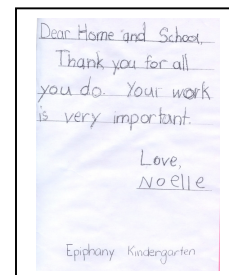 Dear Home and School,
Thank you for all
you do. Your work
is very important.
Love,
Noelle
Epiphany Kindergarten